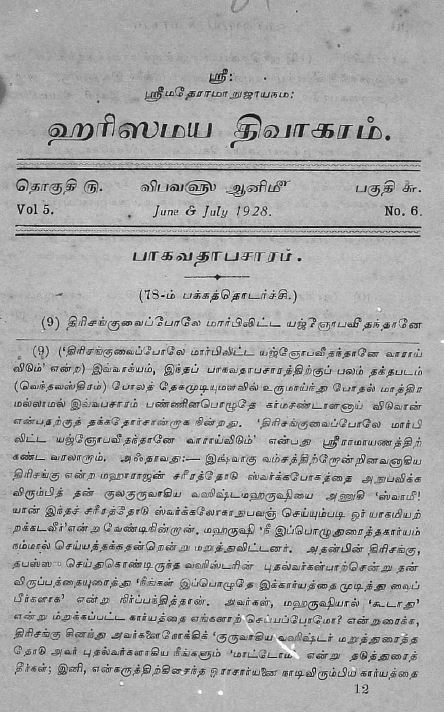 ஸ்ரீ:
ஸ்ரீமதேராமாநுஜாயநம:
ஹரிஸமய திவாகரம்.
தொகுதி ௫. விபவளு ஆனிமீ பகுதி ௬.
Vol 5. June & July 1928. No. 6.
பாகவதாபசாரம்.
(78-ம் பக்கத்தொடர்ச்சி.)
(9) திரிசங்குவைப்போலே மார்பிலிட்ட யஜ்ஞோபவீதந்தானே
(9) ('திரிசங்குவைப்போலே மார்பிலிட்ட யஜ்ஞோபவீதந்தானே வாராய்
விடும்' என்ற) இவ்வாக்யம், இந்தப் பாகவதாபசாரத்திற்குப் பலம் தக்தபடம்
(வெந்தவஸ்திரம்) போலத் தேகமுடியுமளவில் உருமாய்ந்து போதல் மாத்திர
மல்லாமல் இவ்வபசாரம் பண்ணினபொழுதே கர்மசண்டாளனாய் விடுவான்
என்பதற்குத் தக்கதோர்சான்றாக நின்றது. 'திரிசங்குவைப்போலே மார்பி
லிட்ட யஜ்ஞோபவீதந்தானே வாராய்விடும்' என்பது ஸ்ரீராமாயணத்திற்
கண்ட வரலாறாம். அஃதாவது:— இக்ஷ்வாகு வம்சத்திற்றோன்றினவனாகிய
திரிசங்கு என்ற மஹாராஜன் சரீரத்தோடு ஸ்வர்க்கபோகத்தை அநுபவிக்க
விரும்பித் தன் குலகுருவாகிய வஸிஷ்டமஹருஷியை அணுகி 'ஸ்வாமீ!
யான் இந்தச் சரீரத்தோடு ஸ்வர்க்கலோகாநுபவஞ் செய்யும்படி ஓர் யாகமியற்
றக்கடவீர்' என்று வேண்டிநின்றான். மஹருஷி 'நீ இப்பொழுதுரைத்தகார்யம்
நம்மால் செய்யத்தக்கதன்றென்று மறுத்துவிட்டனர். அதன்பின் திரிசங்கு,
தபஸ்ஸு செய்துகொண்டிருந்த வஸிஷ்டரின் புதல்வர்கள்பாற்சென்று தன்
விருப்பத்தையுரைத்து 'நீங்கள் இப்பொழுதே இக்கார்யத்தை முடித்து வைப்
பீர்களாக' என்று நிர்ப்பந்தித்தான். அவர்கள், மஹருஷியால் 'கூடாது'
என்று மறுக்கப்பட்ட கார்யத்தை எங்களாற் செய்யப்போமோ? என்றுரைக்க,
திரிசங்கு சினந்து அவர்களைநோக்கிக் 'குருவாகிய வஸிஷ்டர் மறுத்துரைத்த
தோடு அவர் புதல்வர்களாகிய நீங்களும் 'மாட்டோம்' என்று தடுத்துரைத்
தீர்கள்; இனி, என்கருத்திற்கிசைந்த ஓராசார்யனை நாடிவிரும்பிய கார்யத்தை
12